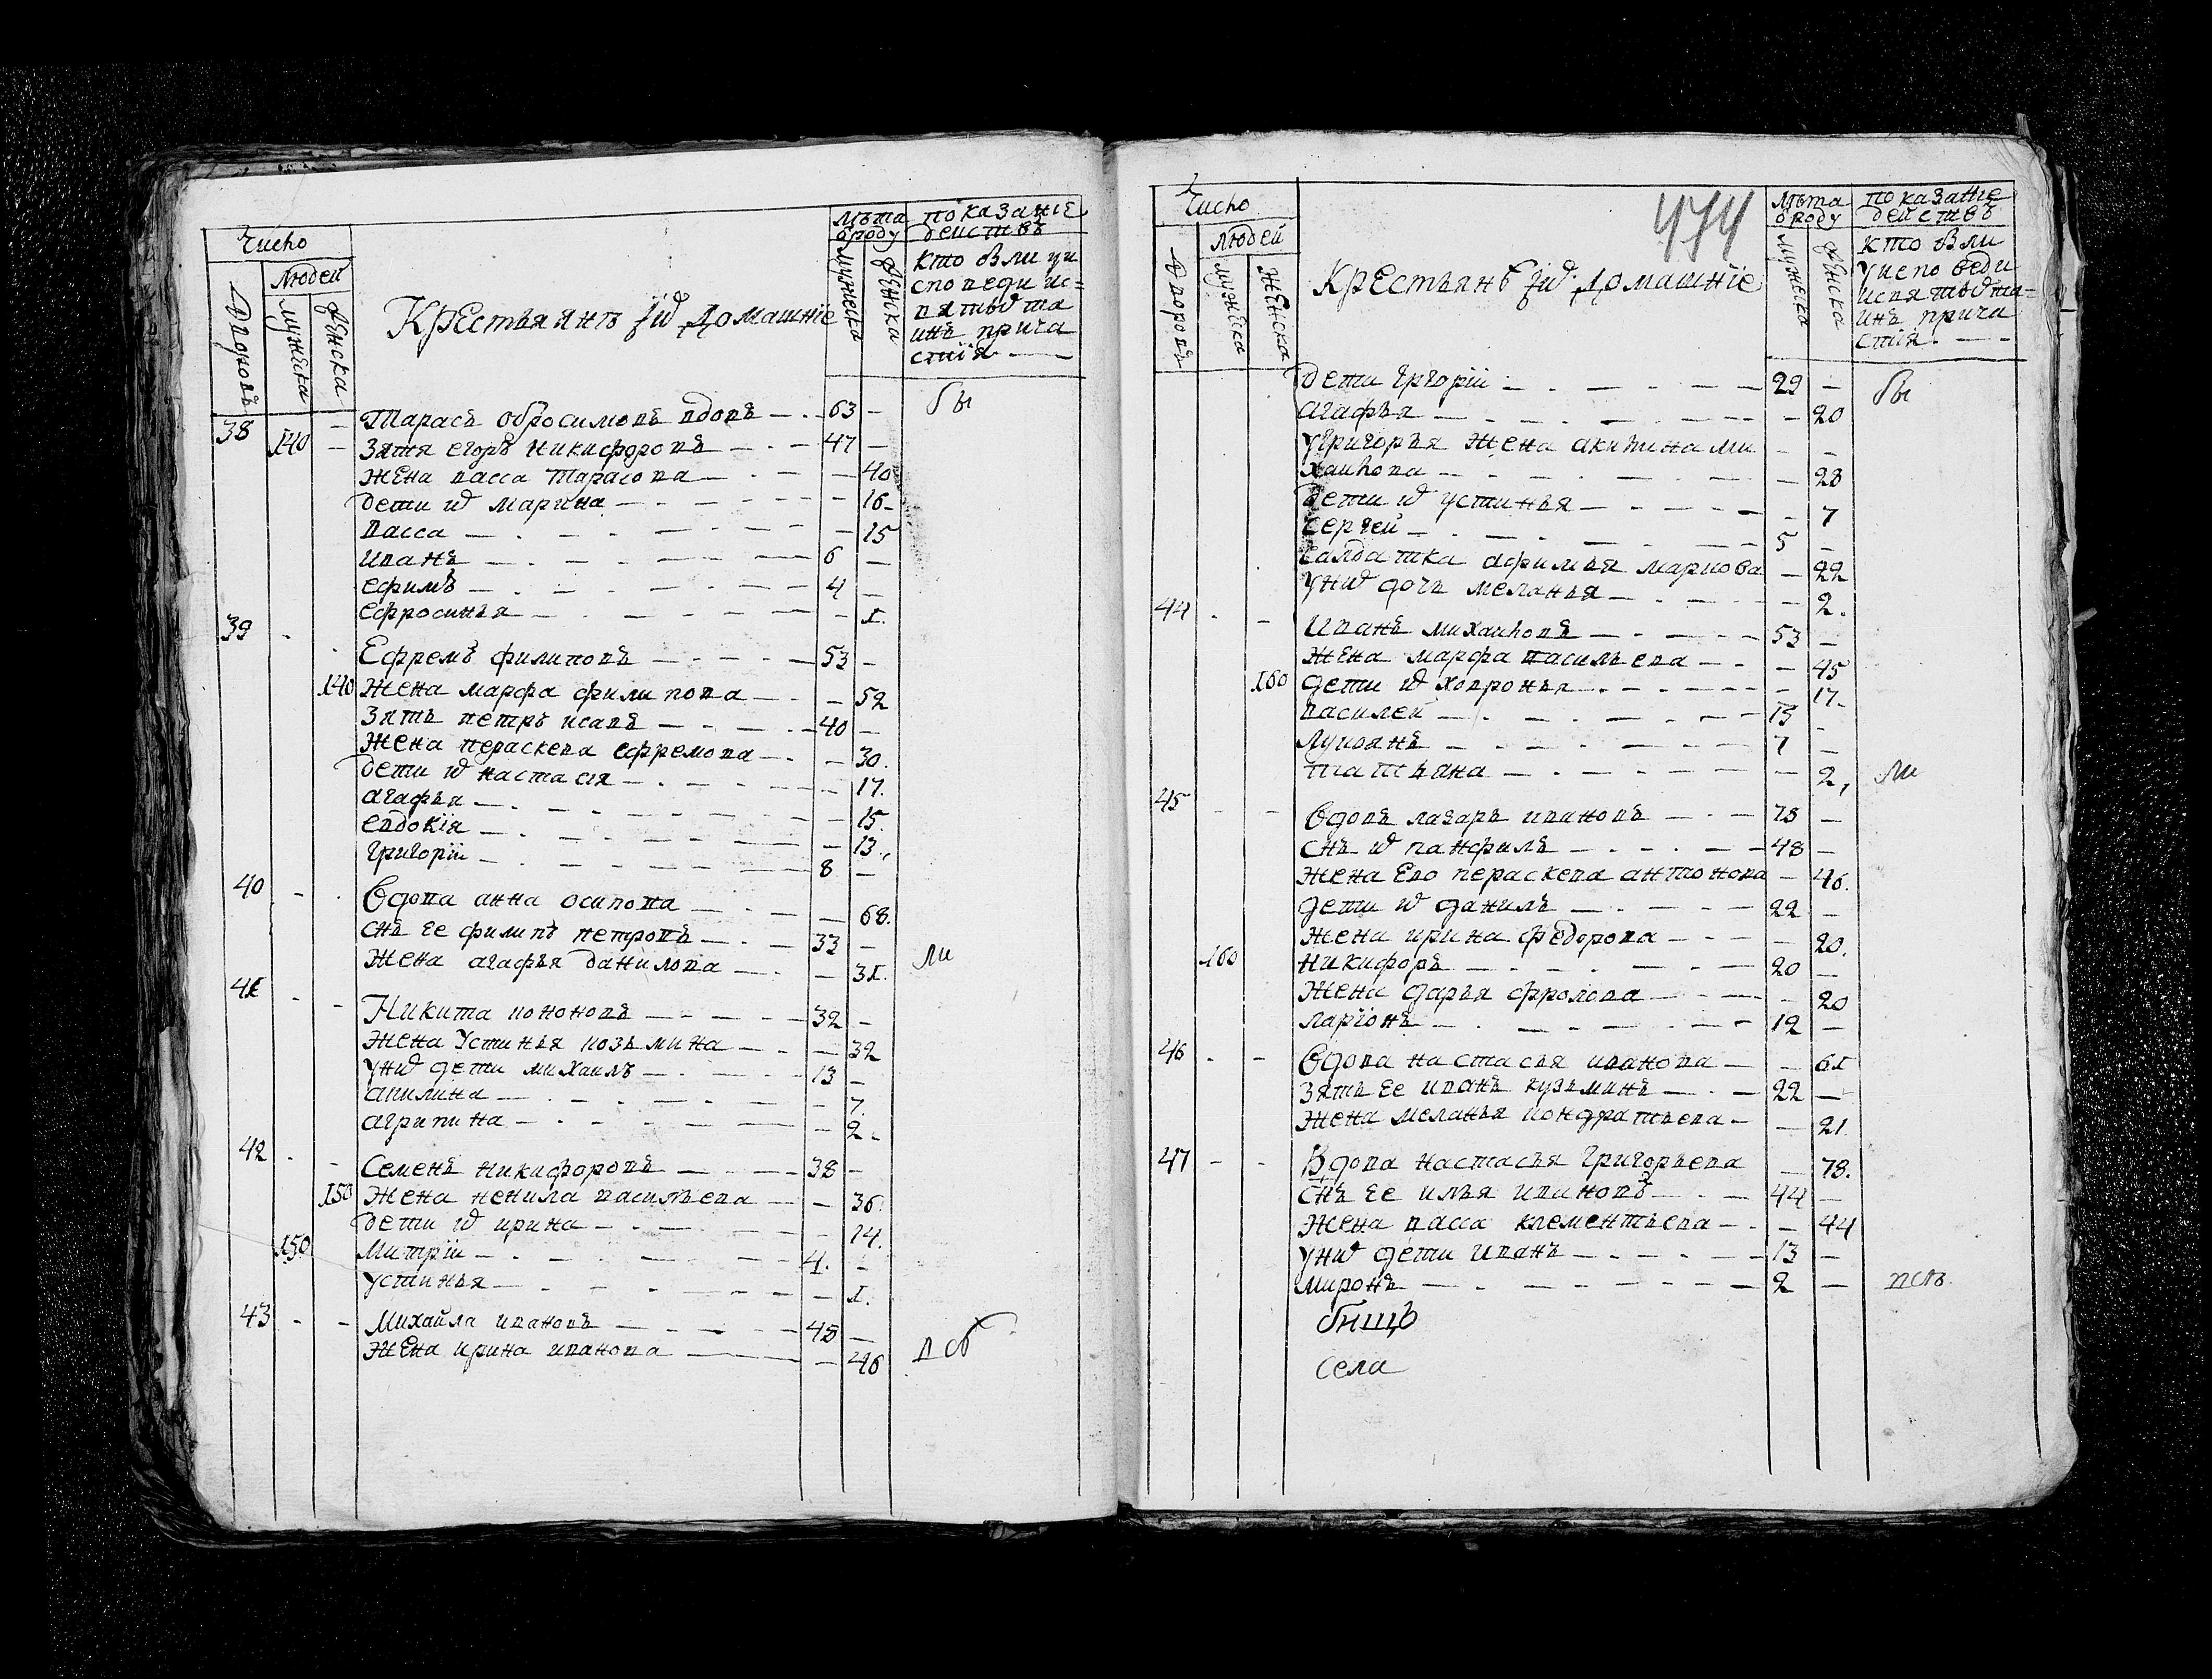 Число
Людей
Дворовъ
мужеска
женска
Крестьянъ їихъ домашніе
лѣта
ѿроду
мужеска
женска
показаніе
действъ
кто были уи
споведи ис=
вятыхъ та
инъ прича
стия
38 140 Тарасъ обросимовъ вдовъ 63 бы
зятя егоръ никифоровъ 47
жена васса тарасова 40
дети их марина 16
васса 15
иванъ 6
ефимъ 4
ефросинья 1.
39 Ефремъ филиповъ 53
140 жена марфа филипова 52
зять петръ исаевъ 40
жена пераскева ефремова 30.
дети их настасия 17.
агафья 15.
евдокия 13.
григории 8
40 вдова анна осипова 68.
снъ ее филипъ петровъ 33
жена агафья данилова 31. ли
41 Никита кононовъ 32
жена устинья козьмина 32
у них дети михаилъ 13
акилина 7.
агрипина 2.
42 Семенъ никифоровъ 38
150 жена ненила васильева 36.
дети их ирина 14.
150 митрии 4.
устинья 1.
43 Михайла ивановъ 48
жена ирина иванова 46 всѣ
Число
Людей
Дворовъ
мужеска
женска
474
Крестьянъ їихъ домашніе
лѣта
ѿроду
мужеска
женска
показаніе
действъ
кто были
уиспо веди
исвятыхъ та=
инъ прича
стия
дети григории 29 бы
агафья 20
у григорья жена акилина ми
хаилова 28
дети их устинья 7
сергей 5
салдатка афимья маркова 22
у них дочь меланья 2.
44 Иванъ михаиловъ 53
жена марфа васильева 45
160 дети их ховронья 17.
василей 15
лукоянъ 7
татьяна 2, ли
45 вдовъ лазаръ ивановъ 75
снъ их панфилъ 48
жена ево пераскева антонова 46.
дети их данилъ 22
жена ирина федорова 20.
160 никифоръ 20
жена дарья фролова 20
ларионъ 12
46 вдова настасья иванова 61
зять ее иванъ кузьминъ 22
жена меланья кондратьева 21.
47 Вдова настасья григорьева 78.
снъ ее илья ивановъ 44
жена васса клементьева 44
у них дети иванъ 13
миронъ 2 всѣ
села